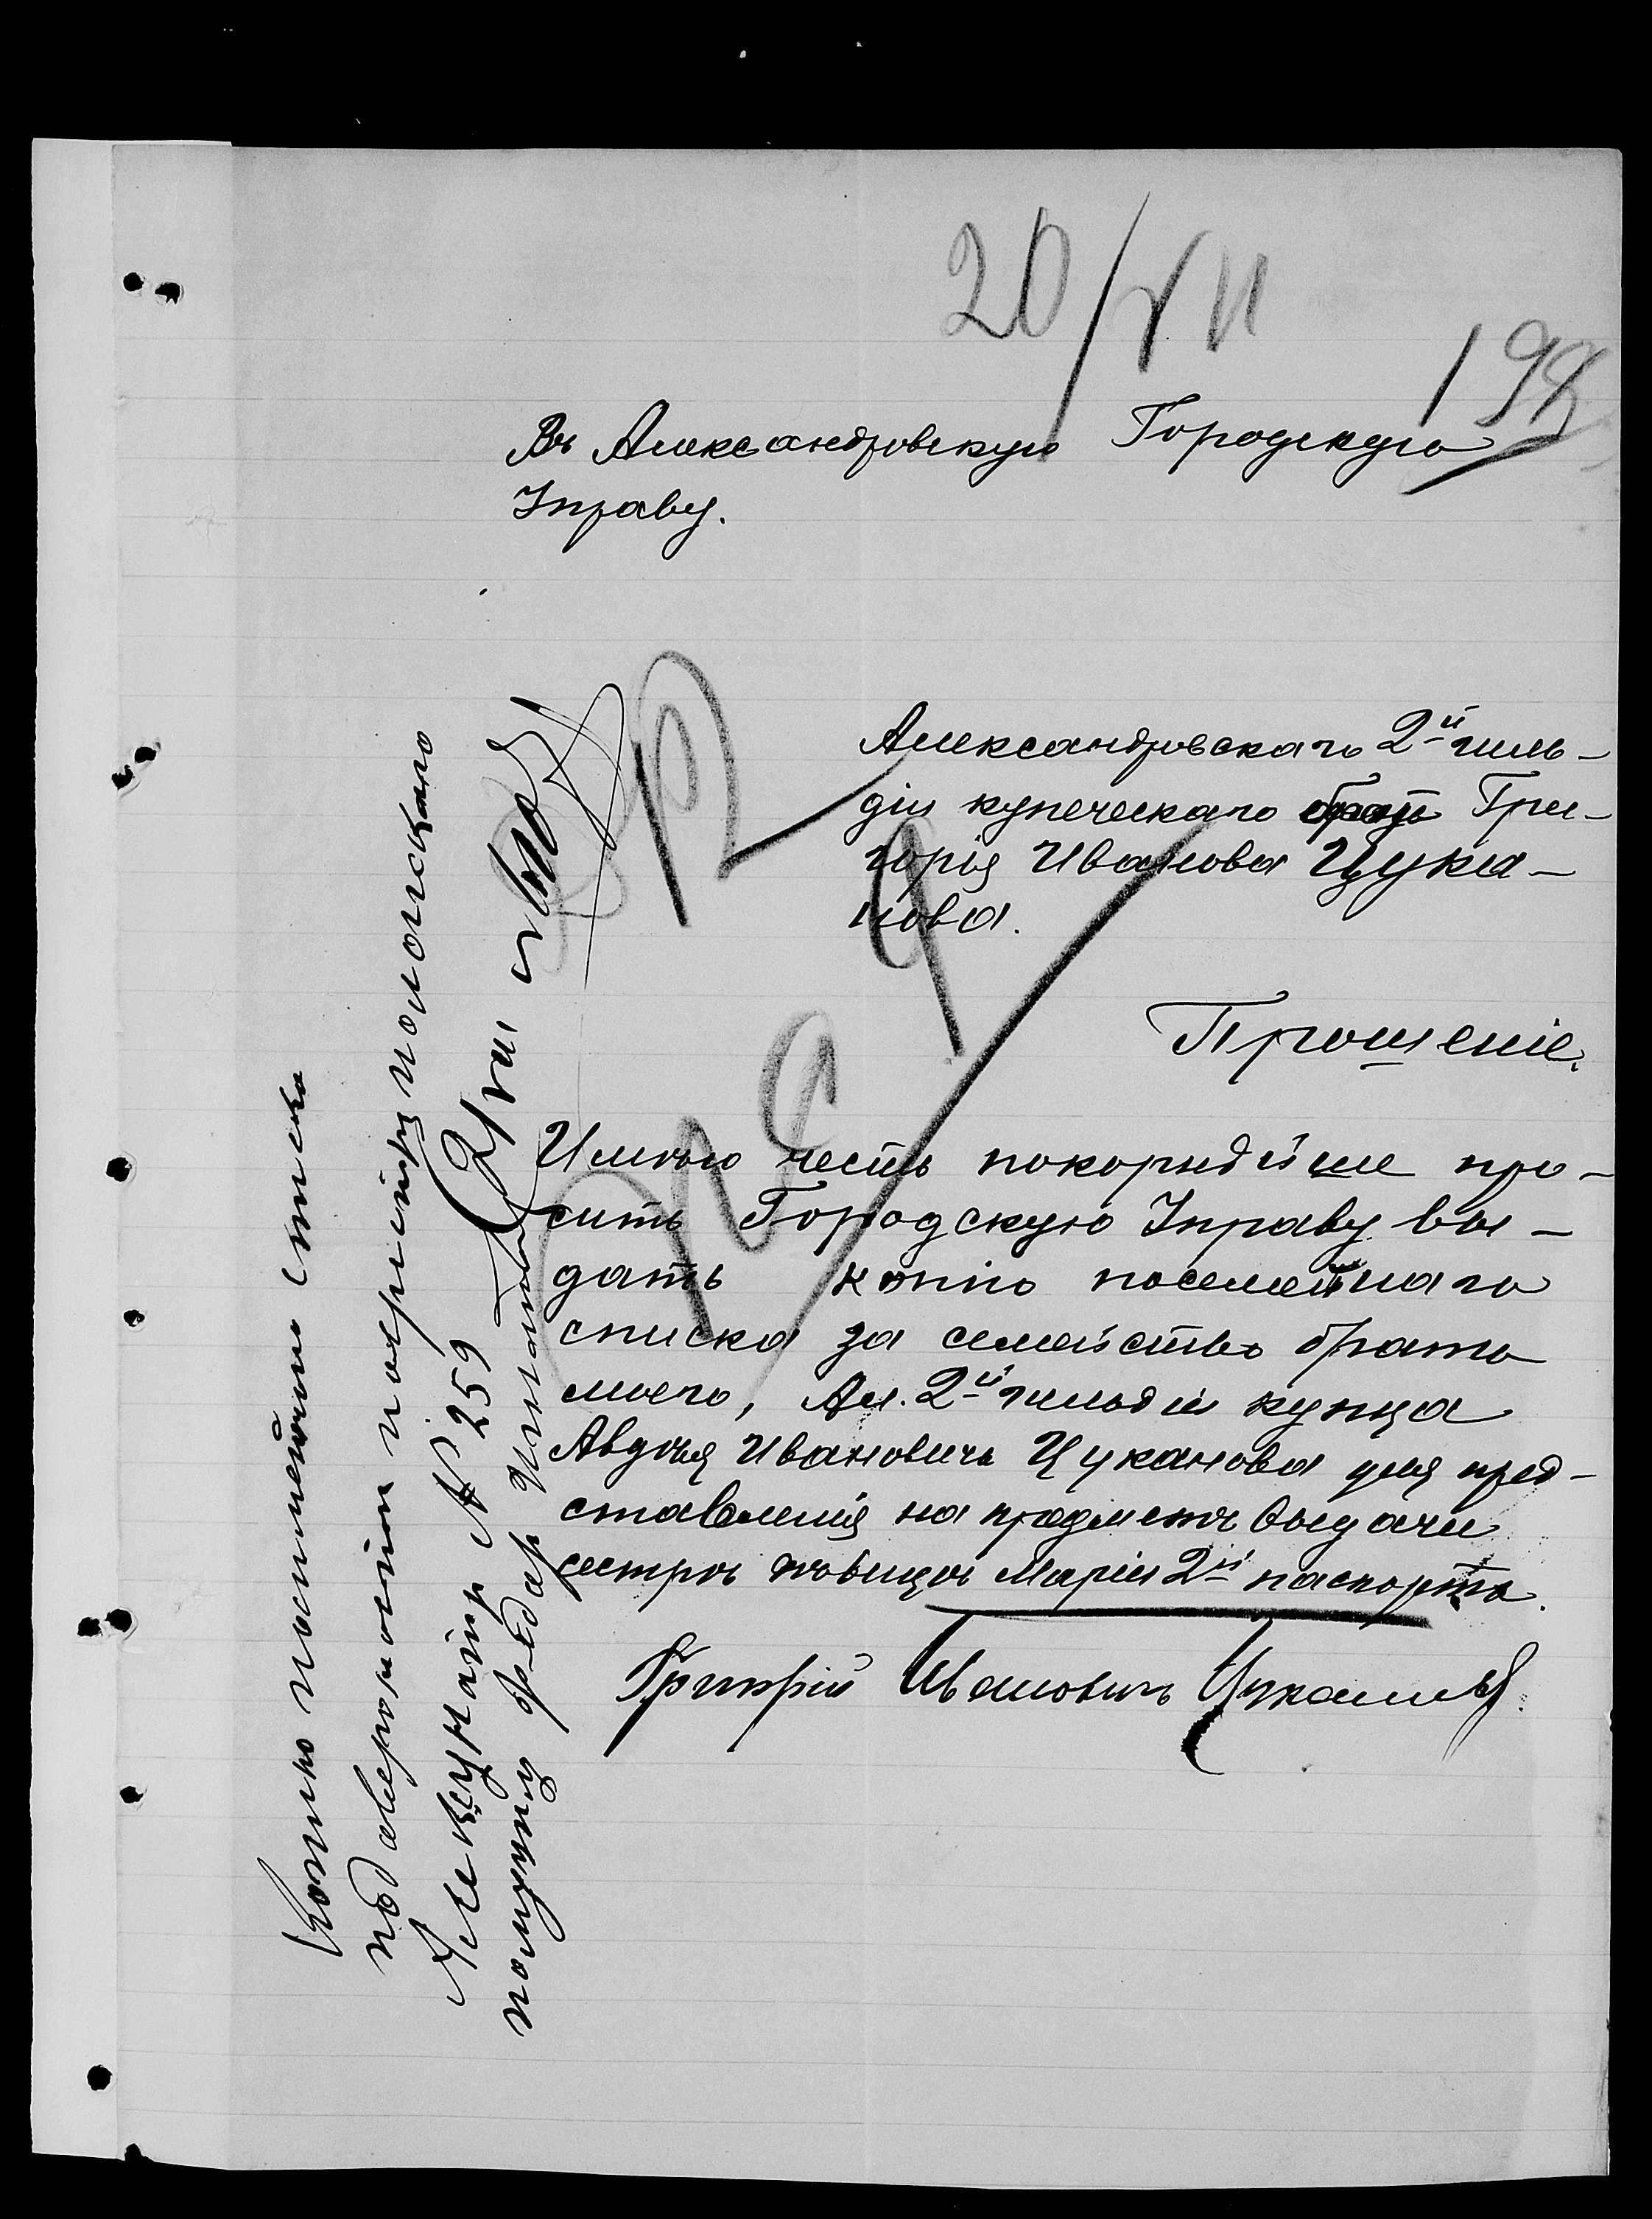 20/VII
198
Въ Александровскую Городскую
Управу.
Александровскаго 2й гиль-
діи купеческаго брата Гри-
горія Иванова Цука-
нова.
Прошеніе.
Имѣю честь покорнѣйше про-
сить Городскую Управу вы-
дать копію посемейнаго
списка за семейство брата
моего, Ал. 2й гильдіи купца
Авдѣя Ивановича Цуканова для пред-
ставленія на предметъ выдачи
сестрѣ дѣвицѣ Маріи 2й паспорта.
Григорій Ивановичъ Цукановъ
Копію посемейнаго списка
по довѣренности
№ 259
получилъ